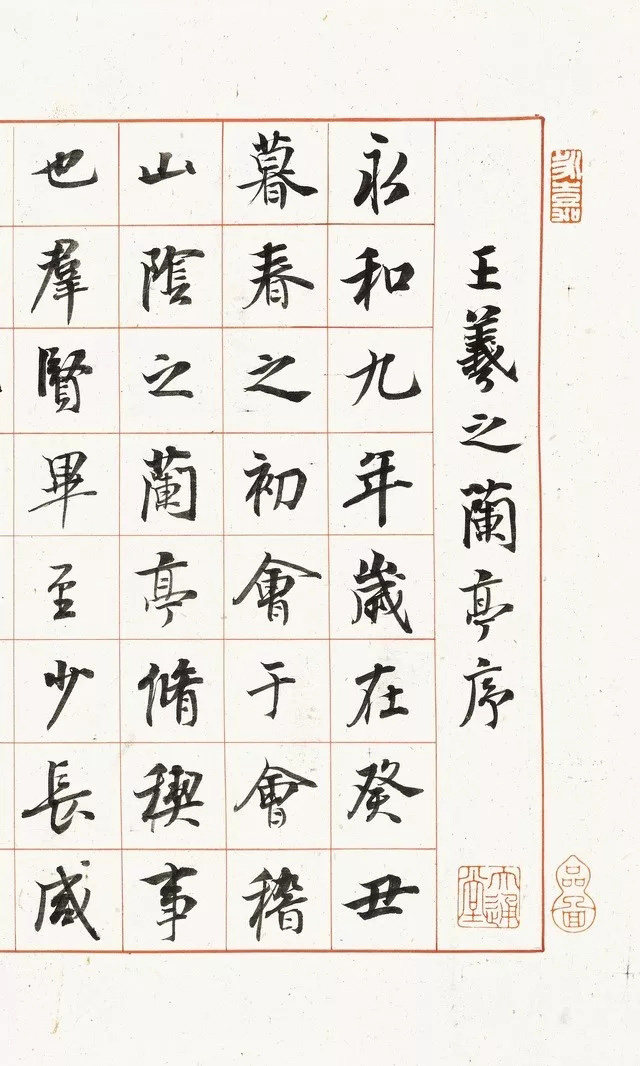 王羲之蘭亭序
永和九年歲在癸丑
暮春之初會于會稽
山陰之蘭亭脩稧事
也羣賢畢至少長咸
大通堂